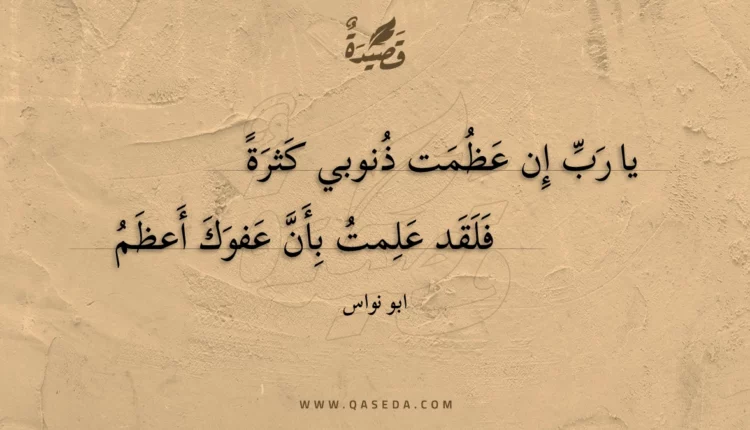 قَصِيدَةٌ
يا رَبِّ إِن عَظُمَت ذُنوبي كَثرَةً
فَلَقَد عَلِمتُ بِأَنَّ عَفوَكَ أَعظَمُ
ابو نواس
WWW.QASEDA.COM